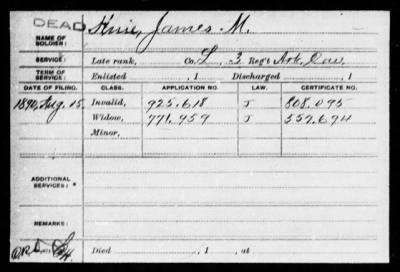 DEAD
NAME OF SOLDIER: James M.
SERVICE: Late rank, Co. L, 3 Reg't Ark. Cav.
TERM OF SERVICE: Enlisted , 1 Discharged , 1
DATE OF FILING. CLASS. APPLICATION NO. LAW. CERTIFICATE NO.
1890, Aug. 15 Invalid, 925.618 J 808.095
Widow, 771.959 J 557.694
Minor,
ADDITIONAL SERVICES:
REMARKS:
Died , 1 , at